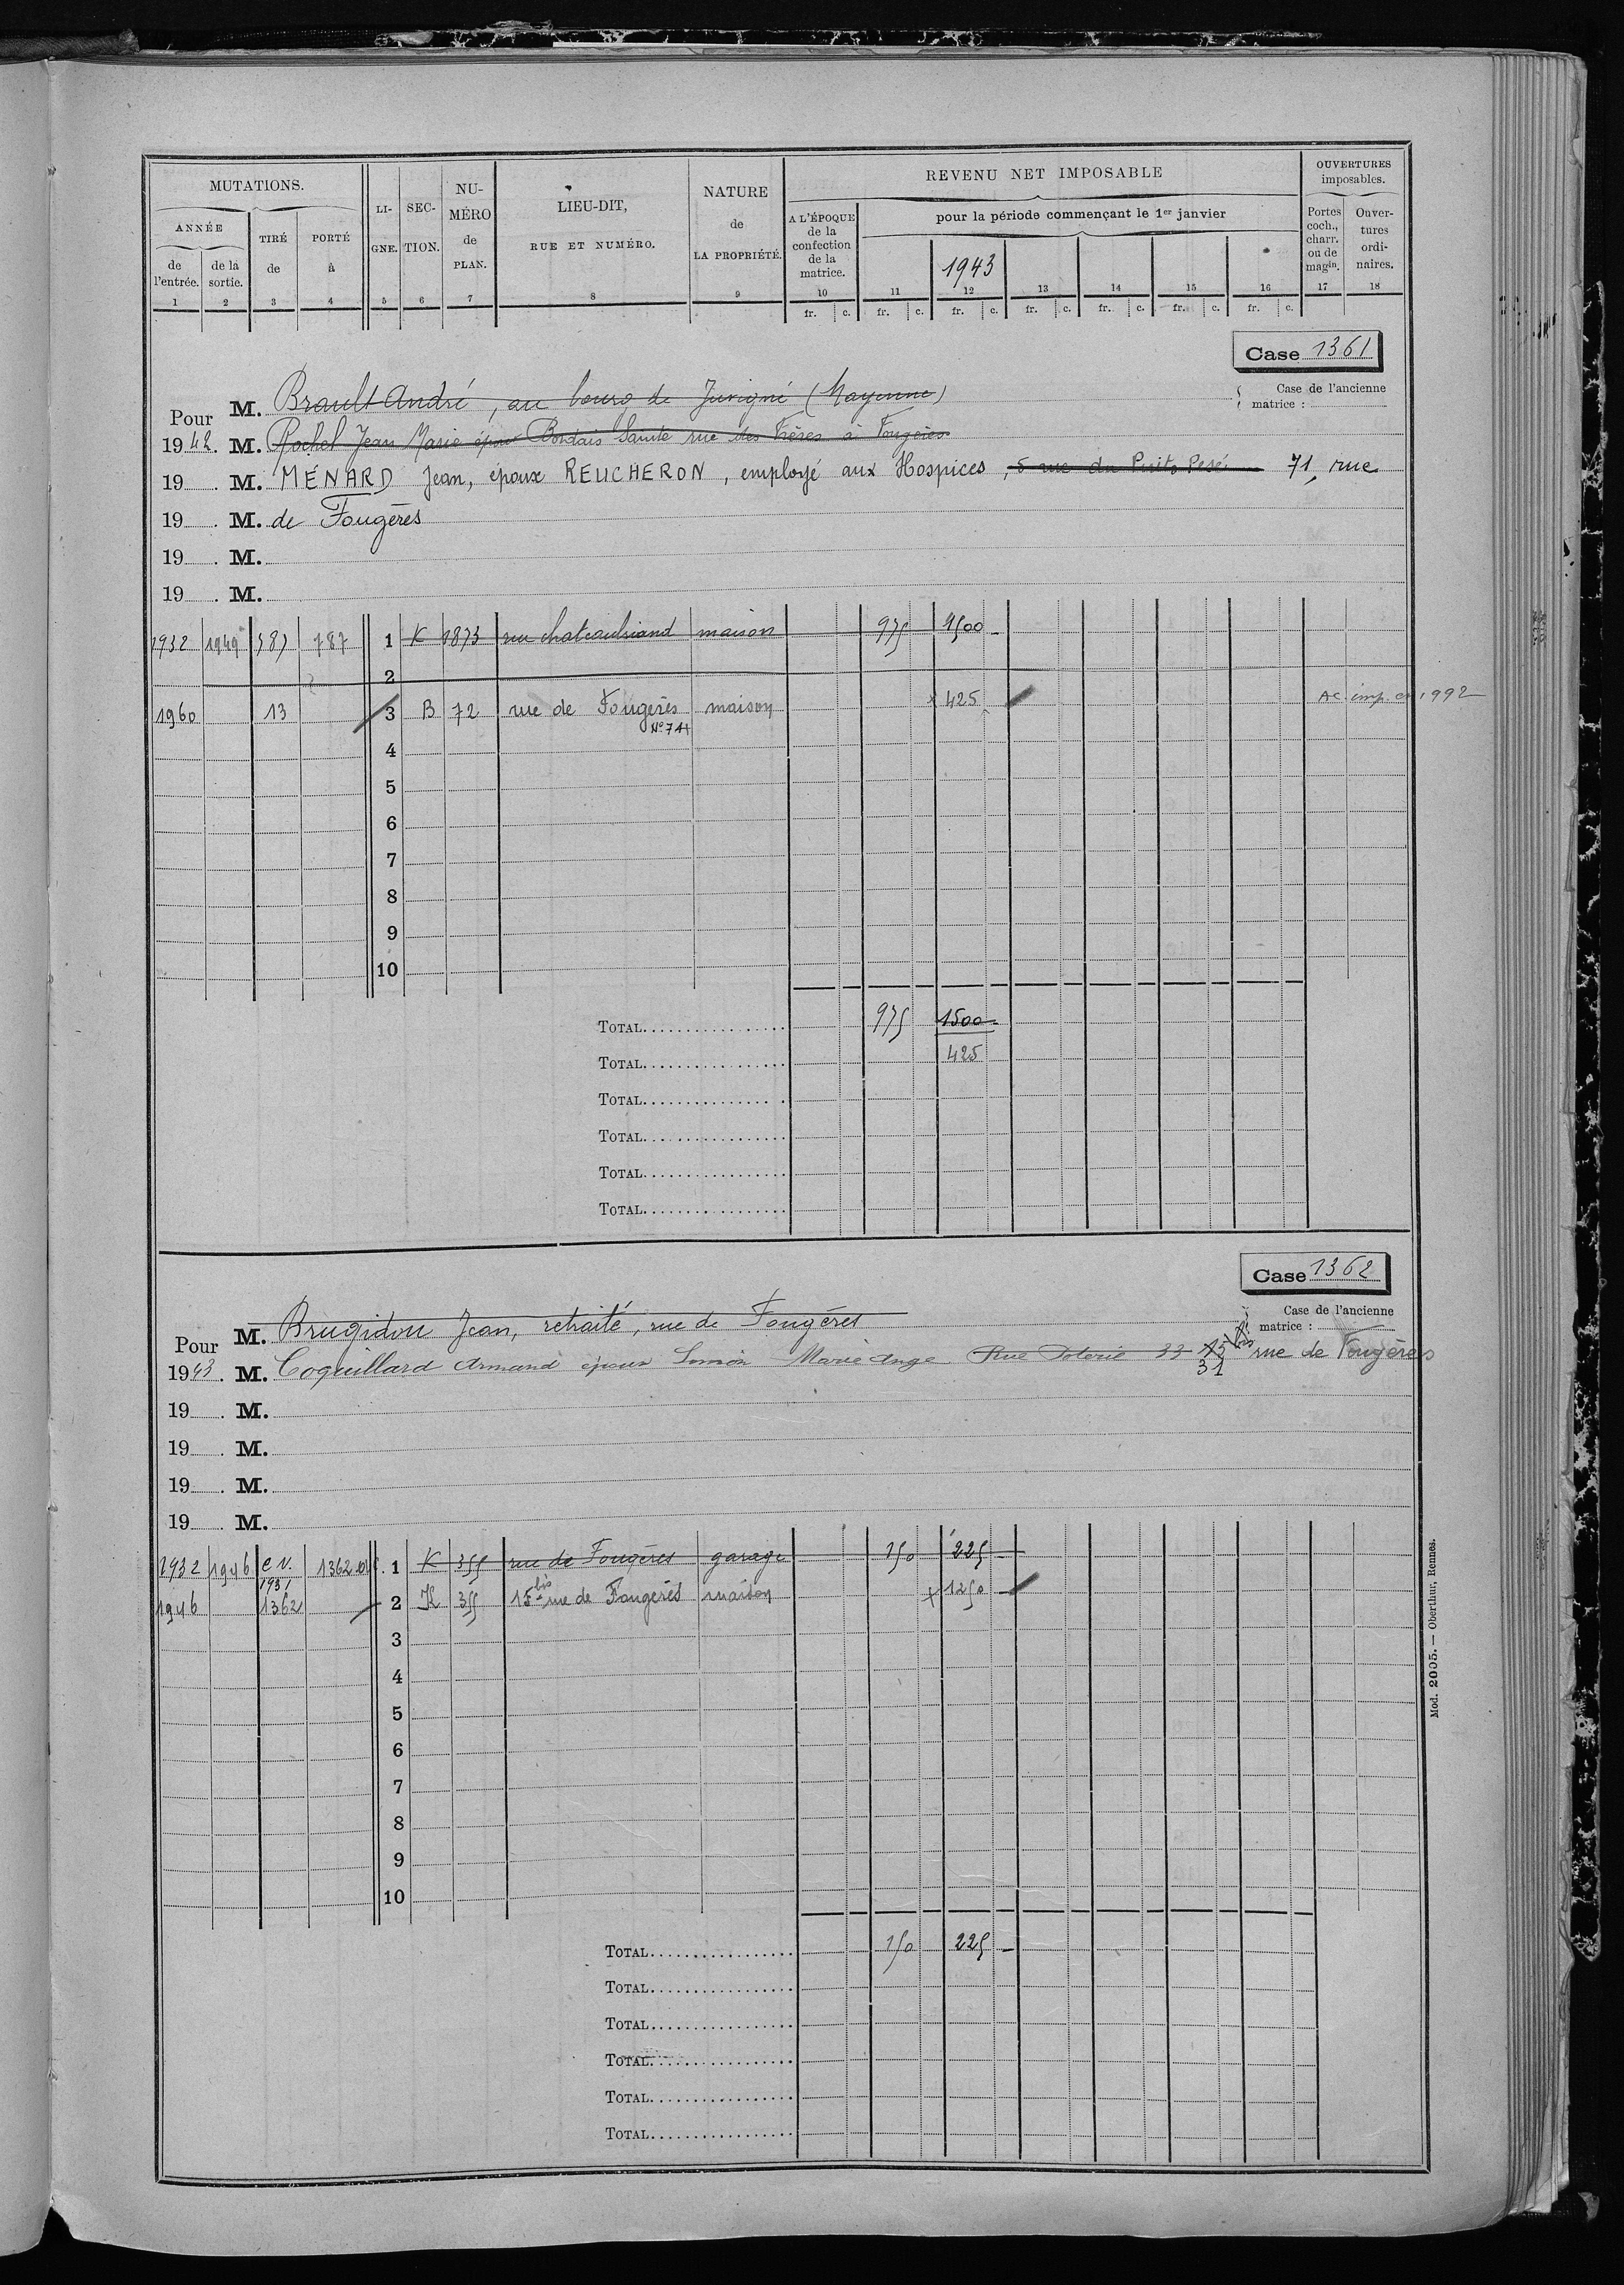 MUTATIONS.
ANNÉE
de l'entrée.
de la sortie.
TIRÉ de
PORTÉ à
LIGNE.
SECTION.
NUMÉRO de PLAN.
LIEU-DIT,
RUE ET NUMÉRO.
NATURE
de
LA PROPRIÉTÉ.
REVENU NET IMPOSABLE
A L'ÉPOQUE de la confection de la matrice.
pour la période commençant le 1er janvier
1943
OUVERTURES imposables.
Portes coch., charr. ou de magin.
Ouvertures ordinaires.
1 2 3 4 5 6 7 8 9 10 11 12 13 14 15 16 17 18
fr. c. fr. c. fr. c. fr. c. fr. c. fr. c. fr. c.
Case 1361
Case de l'ancienne
matrice :
Pour M. Brault André, au bourg de Juvigné (Mayenne)
1942. M. Rochel Jean Marie époux Bordais Sainte rue des Frères à Fougères
19 . M. MENARD Jean, epoux REUCHERON, employé aux Hospices, 5 rue du Puits Pesé 71, rue
19 . M. de Fougères
19 . M.
19 . M.
1932 1949 587 787 1 K 1873 rue chateaubriand maison 975 1500
2
1960 13 3 B 72 rue de Fougères maison 425 Ac. imp. en 1992
N° 71
4
5
6
7
8
9
10
TOTAL 975 1500
TOTAL 425
TOTAL
TOTAL
TOTAL
TOTAL
Case 1362
Case de l'ancienne
matrice :
Pour M. Brugidou Jean, retraité, rue de Fougères
1943. M. Coquillard Armand époux Simon Marie Ange Rue Poterie 33 15 bis rue de Fougères
31
19 . M.
19 . M.
19 . M.
19 . M.
1932 1946 C N. 1931 1362 1 K 355 rue de Fougères garage 150 225
1946 1362 2 K 355 15 bis rue de Fougères maison 1250
3
4
5
6
7
8
9
10
TOTAL 150 225
TOTAL
TOTAL
TOTAL
TOTAL
TOTAL
Mod. 2005. — Oberthur, Rennes.